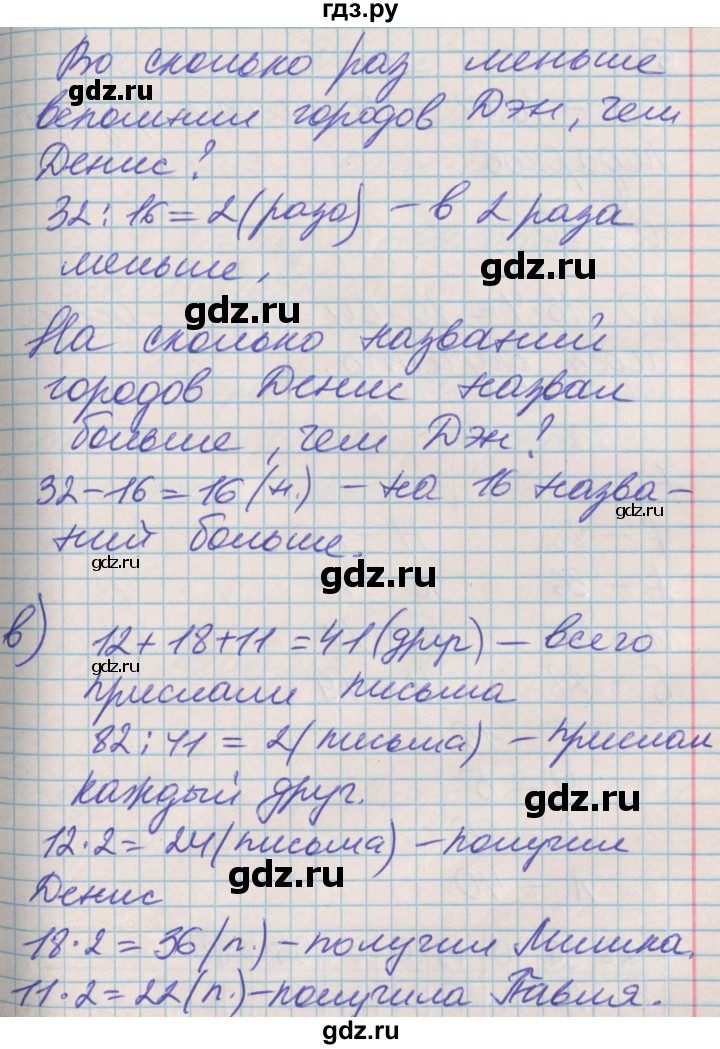 гдз.ру
Во сколько раз меньше
gdz.ru
вспомнил городов Дэн, чем
Денис?
32:16=2(раза) – в 2 раза
gdz.ru
меньше,
gdz.ru
На сколько названий
городов Денис назвал
больше, чем Дэн?
32-16=16(н.) – на 16 назва-
gdz.ru
ний больше.
gdz.ru
gdz.ru
в) 12+18+11=41(друг) – всего
gdz.ru
прислали письма
gdz.ru
82:41=2(письма) – прислал
каждый друг.
gdz.ru
12·2=24(письма) – получил
gdz.ru
Денис
18·2=36(п.) – получил Мишка.
11·2=22(п.) – получила Павля.
gdz.ru
gdz.ru